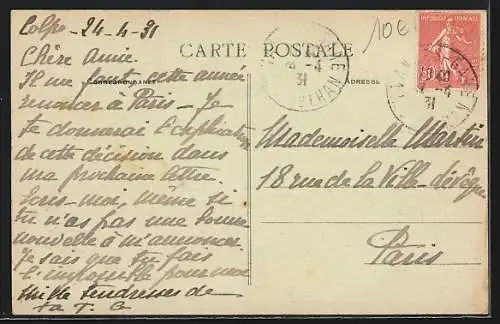 Colpo - 24-4-31
10€
CARTE POSTALE
RÉPUBLIQUE FRANÇAISE
Chère Amie.
CORRESPONDANCE
ADRESSE
Il me faut cette année
renoncer à Paris - Je
te donnerai l'explication
de cette décision dans
ma prochaine lettre.
Ecris-moi, même si
tu n'as pas une bonne
nouvelle à m'annoncer.
Je sais que tu fais
l'impossible pour moi
Mille tendresses de
ta T. G
-4
31
MORBIHAN
-4
31
Mademoiselle Martin
18 rue de la Ville-l'évêque
Paris